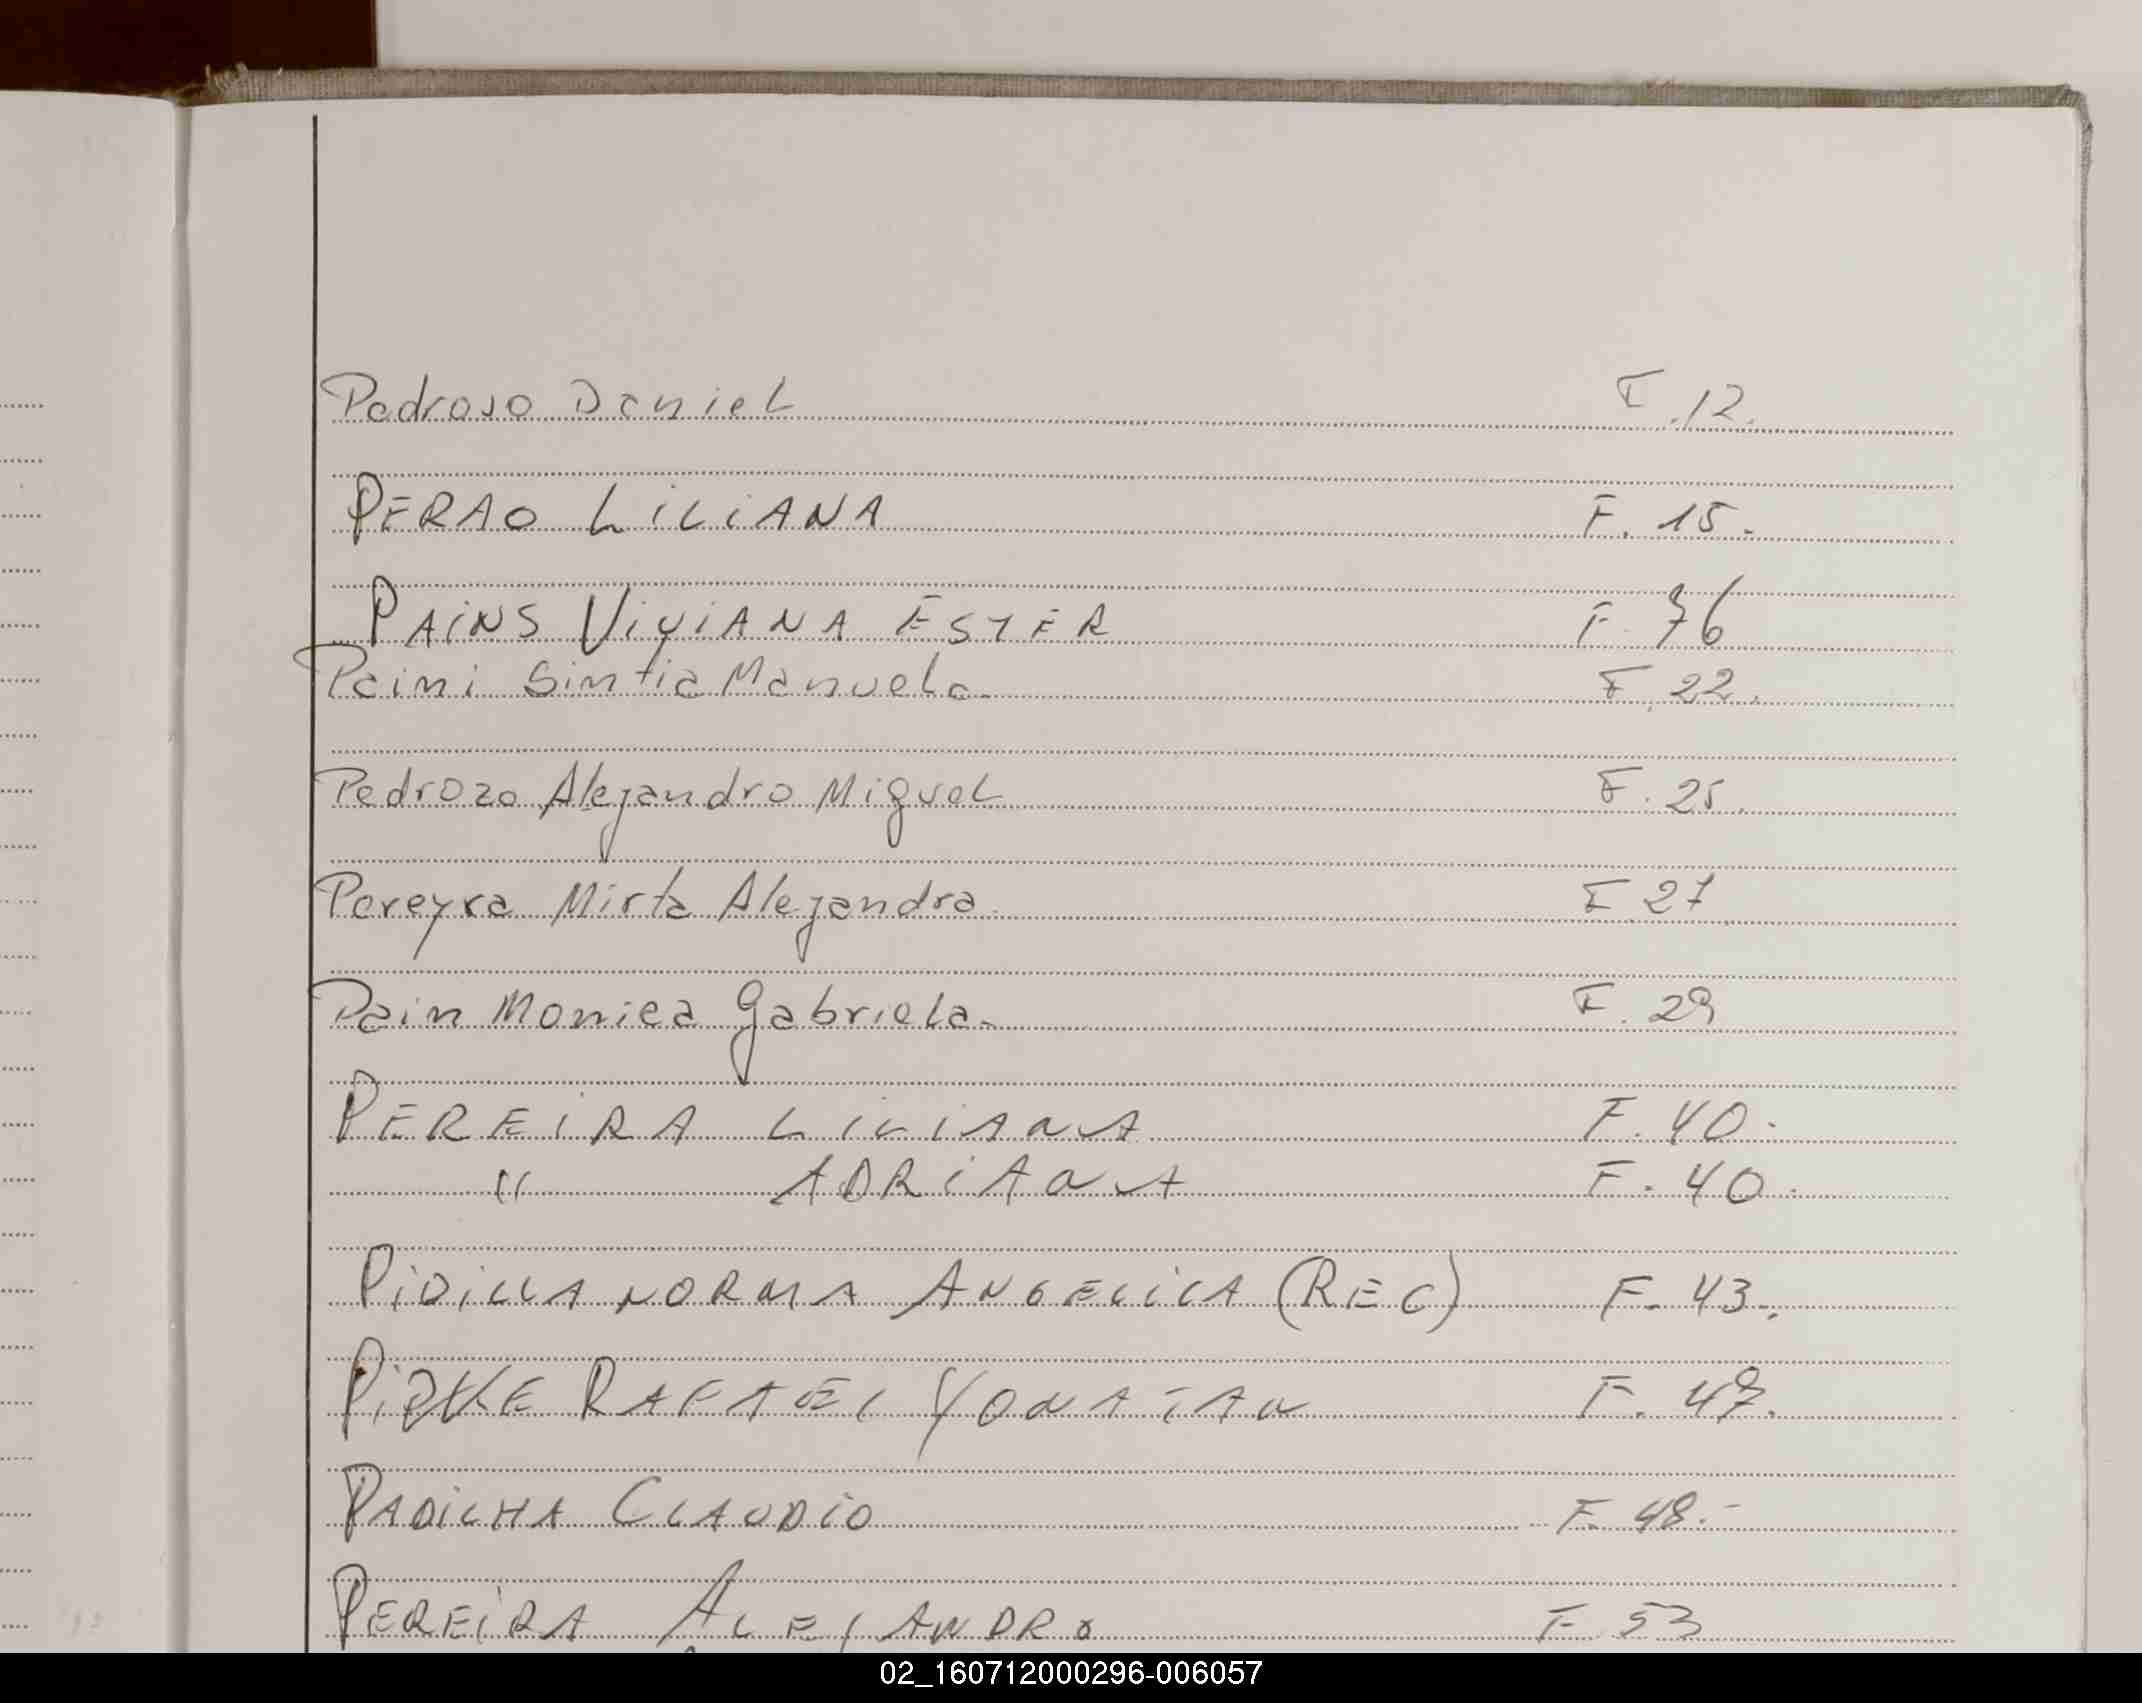 Pedroso Daniel F. 12.
PERAO LILIANA F. 15.
PAINS VIVIANA ESTER F. 76
Paini Sintia Manuela. F. 22.
Pedrozo Alejandro Miguel F. 25.
Pereyra Mirta Alejandra F. 27
Pain Monica Gabriela. F. 29
PEREIRA LILIANA F. 40.
" ADRIANA F. 40.
PIDILLA NORMA ANGELICA (REC) F. 43.
RAFAEL YONATAN F. 47.
PADILHA CLAUDIO F. 48.-
PEREIRA ALEJANDRO F 53
02_160712000296-006057